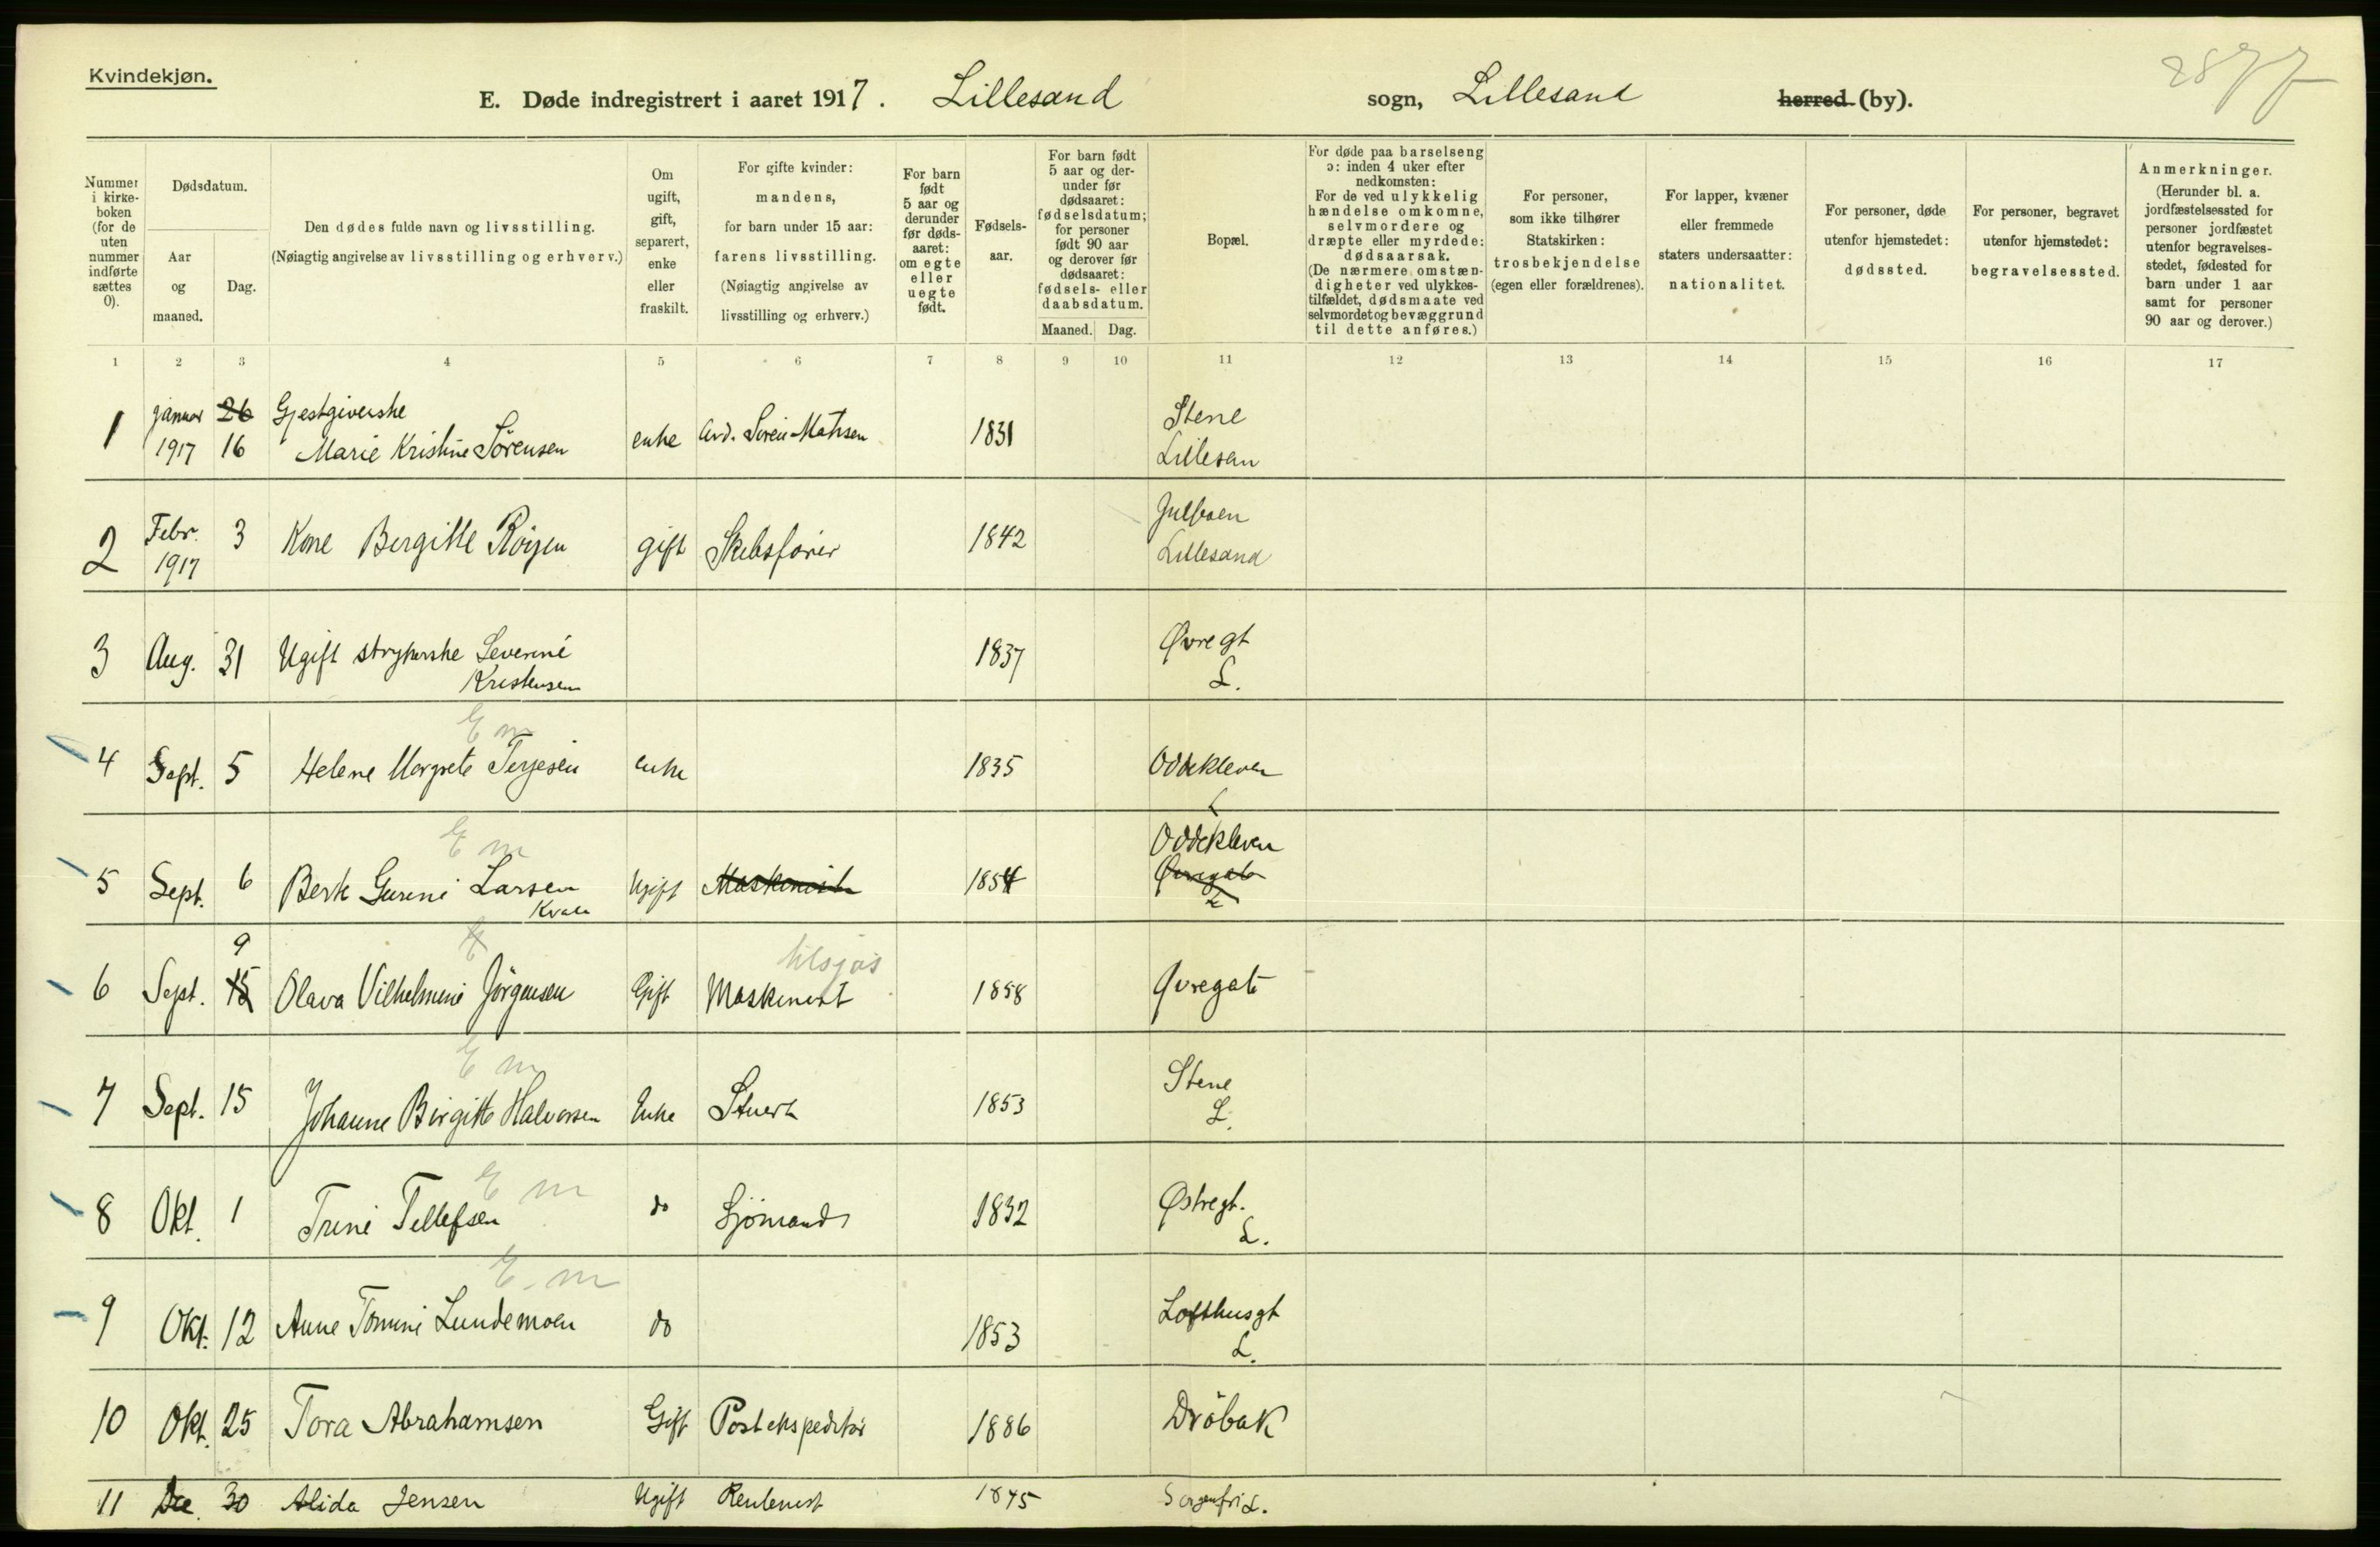 Kvindekjøn.
2877
E. Døde indregistrert i aaret 1917. Lillesand sogn, Lillesand herred (by).
Nummer i kirke-boken (for de uten nummer indførte sættes 0).
Dødsdatum.
Aar og maaned.
Dag.
Den dødes fulde navn og livsstilling.
(Nøiagtig angivelse av livsstilling og erhverv.)
Om ugift, gift, separert, enke eller fraskilt.
For gifte kvinder: mandens, for barn under 15 aar: farens livsstilling.
(Nøiagtig angivelse av livsstilling og erhverv.)
For barn født 5 aar og derunder før døds-aaret: om egte eller uegte født.
Fødsels-aar.
For barn født 5 aar og der-under før dødsaaret: fødselsdatum; for personer født 90 aar og derover før dødsaaret: fødsels- eller daabsdatum.
Maaned. Dag.
Bopæl.
For døde paa barselseng ɔ: inden 4 uker efter nedkomsten:
For de ved ulykkelig hændelse omkomne, selvmordere og dræpte eller myrdede: dødsaarsak.
(De nærmere omstæn-digheter ved ulykkes-tilfældet, dødsmaate ved selvmordet og bevæggrund til dette anføres.)
For personer, som ikke tilhører Statskirken: trosbekjendelse (egen eller forældrenes).
For lapper, kvæner eller fremmede staters undersaatter: nationalitet.
For personer, døde utenfor hjemstedet: dødssted.
For personer, begravet utenfor hjemstedet: begravelsessted.
Anmerkninger.
(Herunder bl. a. jordfæstelsessted for personer jordfæstet utenfor begravelses-stedet, fødested for barn under 1 aar samt for personer 90 aar og derover.)
1 2 3 4 5 6 7 8 9 10 11 12 13 14 15 16 17
januar 26 Gjestgiverske Stene
1 1917 16 Marie Kristine Sörensen enke Sören Matsen 1831 Lillesan
Febr.
2 1917 3 Kone Bergitte Röigen gift Skibsförer 1842 Lillesand
3 Aug. 31 Ugift strykerske Severine Kristensen 1837 Øvregt L.
E m
4 Sept. 5 Helene Margrete Terjesen enke 1835 Oddekleven L
E m
5 Sept. 6 Larsen Ugift Maskinist 1854 Oddekleven Øvregate L
9
6 Sept. 15 Olava Vilhelmine Jörgensen Gift Maskinist tilsjøs 1858 Øvregate
E m
7 Sept. 15 Johanne Birgitte Halvorsen Enke Stuert 1853 Stene L.
E m
8 Okt. 1 Trine Tellefsen do Sjömand 1832 Østregt. L.
E m
9 Okt. 12 Anne Tomine Lundemoen do 1853 Lofthusgt L.
10 Okt. 25 Tora Abrahamsen Gift Postekspeditör 1886 Dröbak
11 Dec. 30 Alida Jensen Ugift Rentenist 1845 Sorgenfri L.